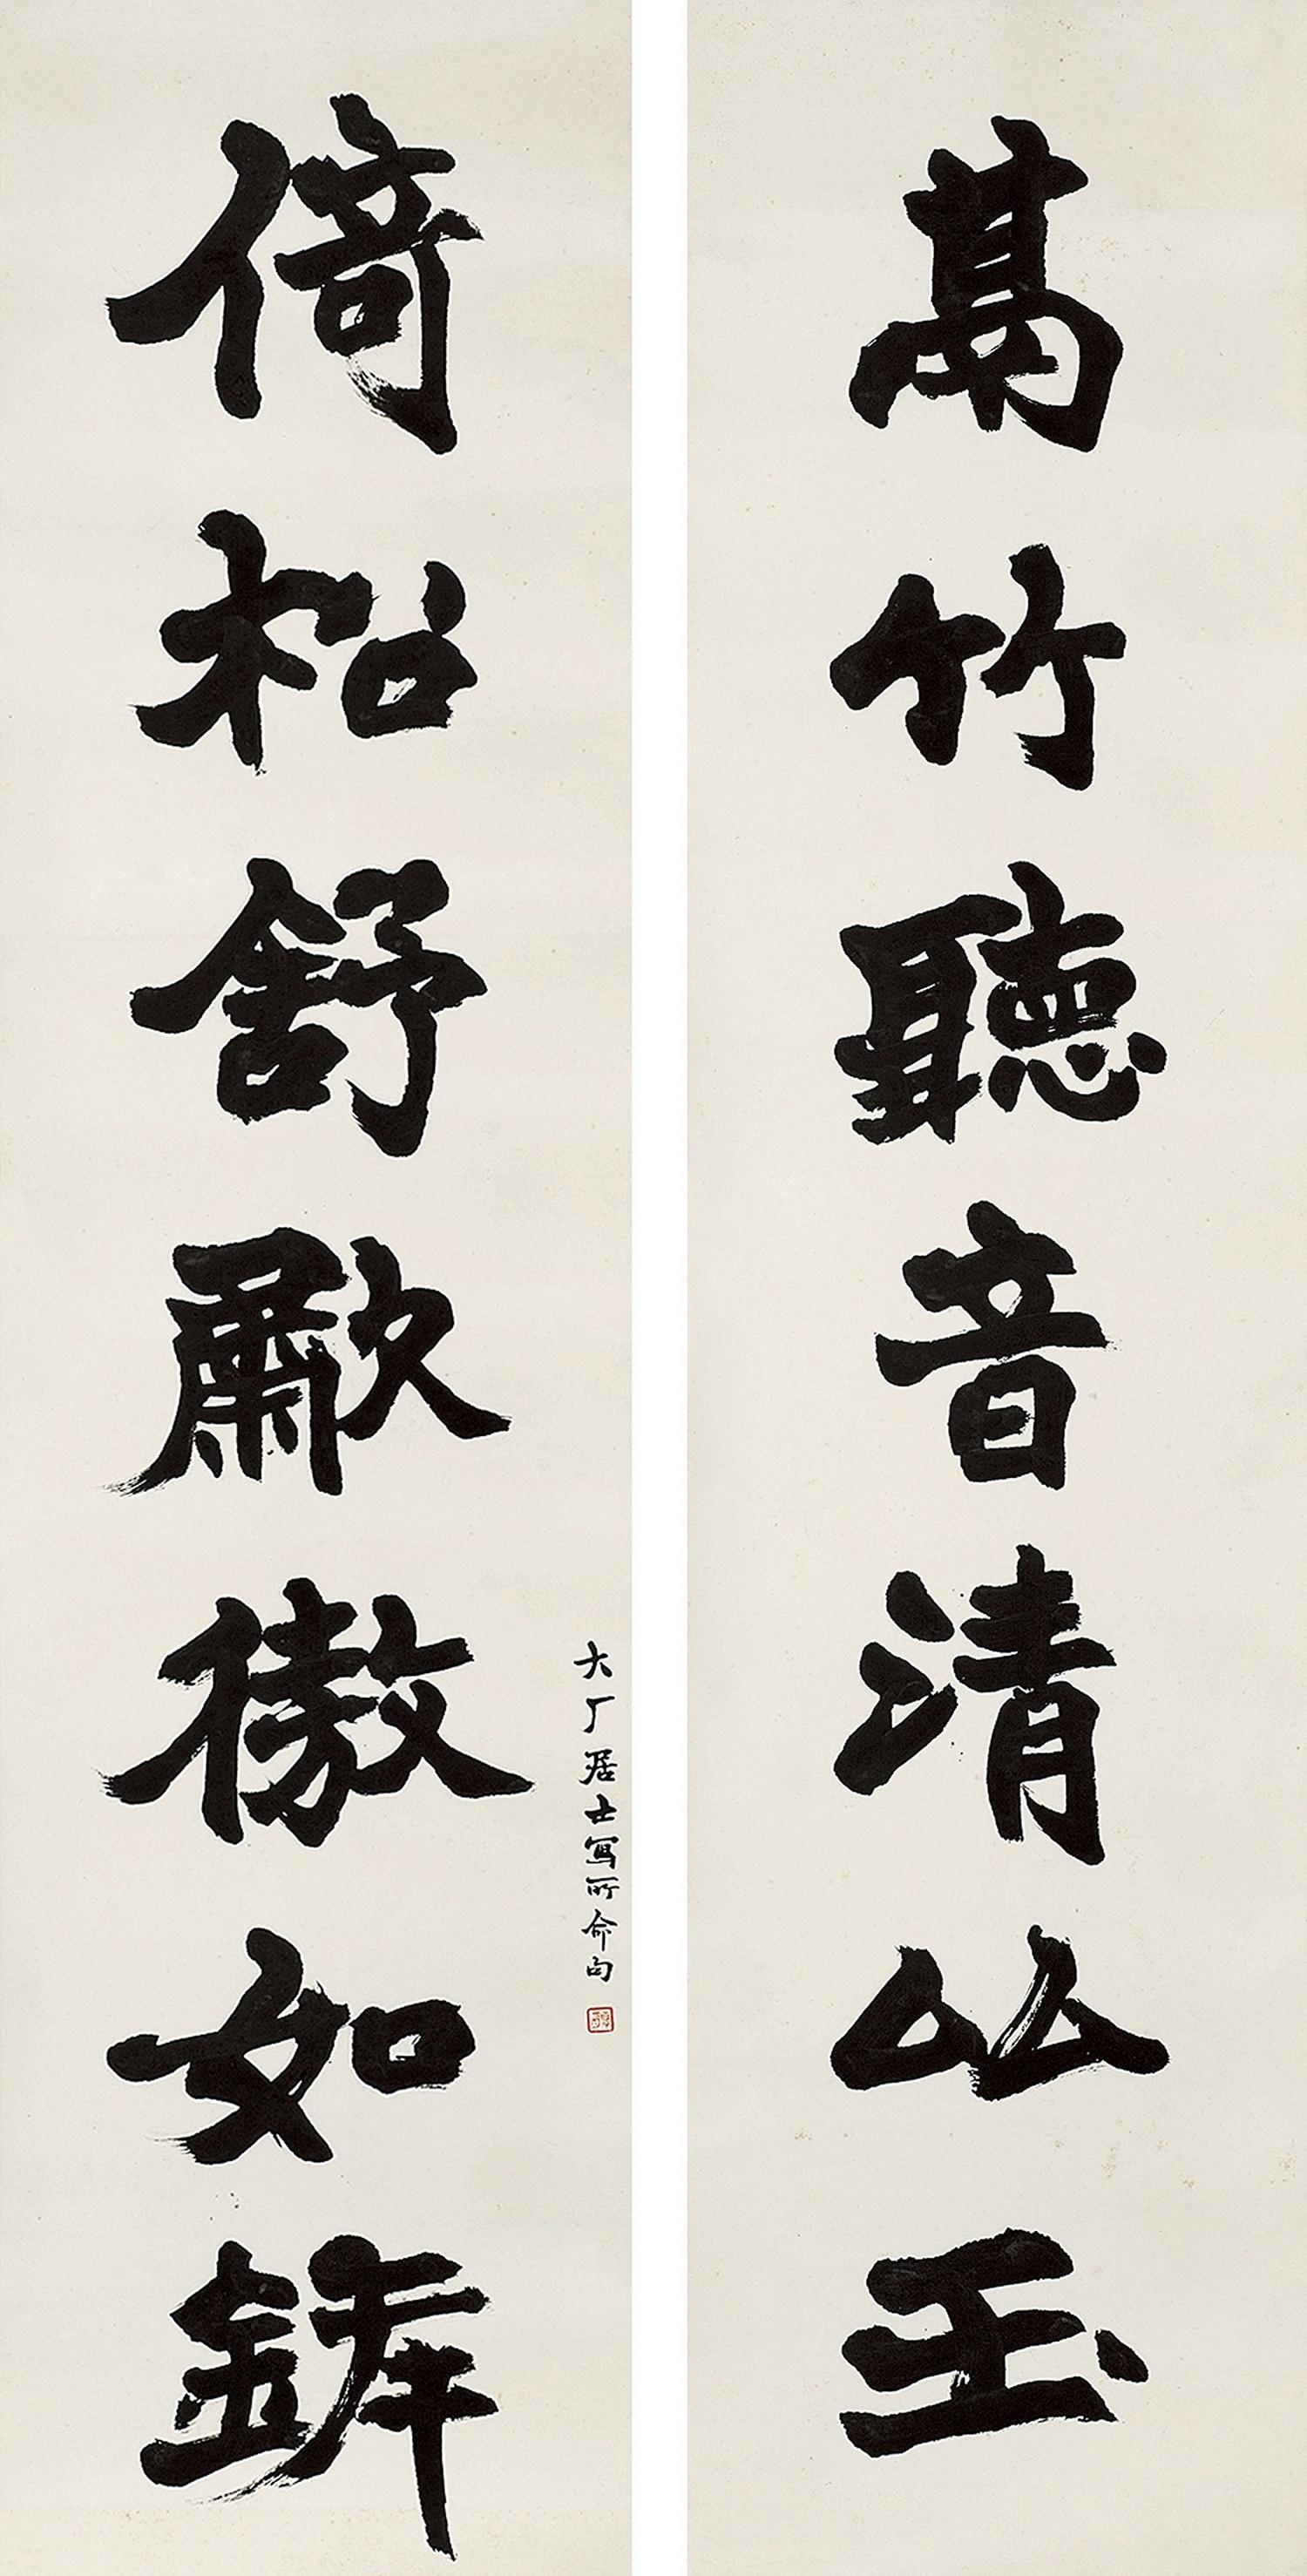 萬竹聽音清比玉
倚松舒歗傲如
大厂居士寫所命句